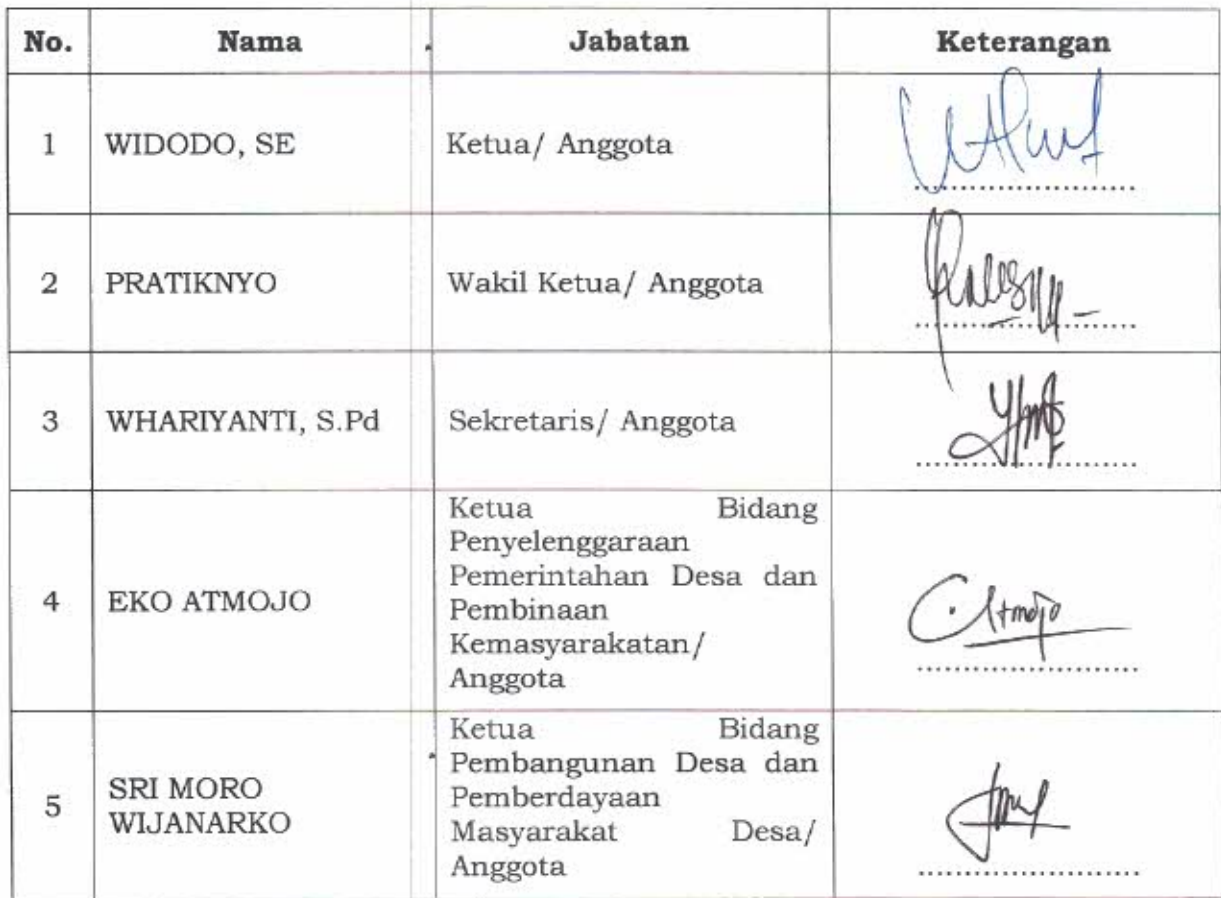 No. Nama Jabatan Keterangan
1 WIDODO, SE Ketua/ Anggota
2 PRATIKNYO Wakil Ketua/ Anggota
3 WHARIYANTI, S.Pd Sekretaris/ Anggota
4 EKO ATMOJO
Ketua Bidang
Penyelenggaraan
Pemerintahan Desa dan
Pembinaan
Kemasyarakatan/
Anggota
Atmojo
5
SRI MORO
WIJANARKO
Ketua Bidang
Pembangunan Desa dan
Pemberdayaan
Masyarakat Desa/
Anggota